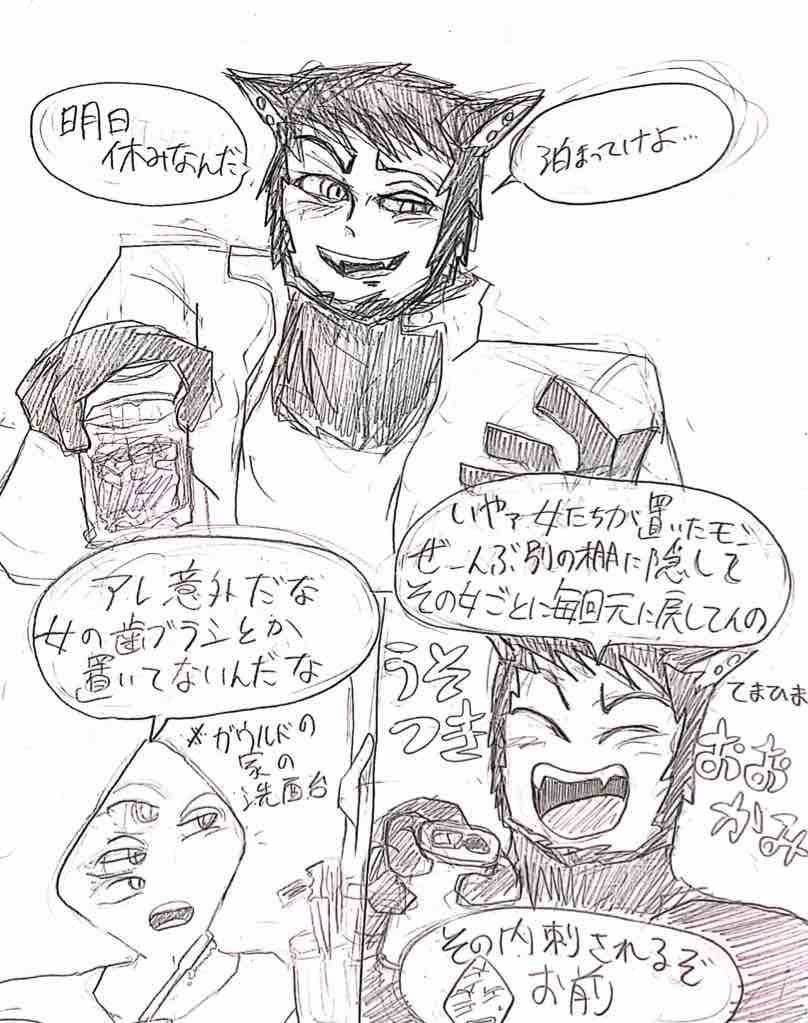 明日
休みなんだ
泊まってけよ…
アレ意外だな
女の歯ブラシとか
置いてないんだな
※ガウルドの
家の
洗面台
いやァ女たちが置いたモン
ぜーんぶ別の棚に隠して
その女ごとに毎回元に戻してんの
うそ
つき
てまひま
おお
かみ
その内刺されるぞ
お前